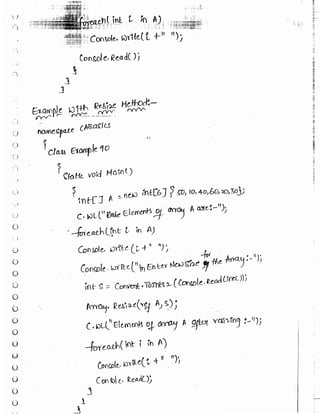 foreach( int i in A)
Console.write(i +" ");
Console.Read( );
}
}
}
Example with Resize Method:-
namespace CABasics
{
class Example 90
{
static void Main( )
{
int[] A = new int[6] { 50, 10, 40, 60, 20, 30};
C.WL("Elements of array A are:-");
foreach(int i in A)
Console.write(i + " ");
Console.write("\n Enter New Size for the Array:-");
int S = Convert.ToInt32(Console.ReadLine());
Array.Resize(ref A, S);
C.WL("Elements of array A after resizing :-");
foreach(int i in A)
Console.write(i + " ");
Console.Read();
}
}
}